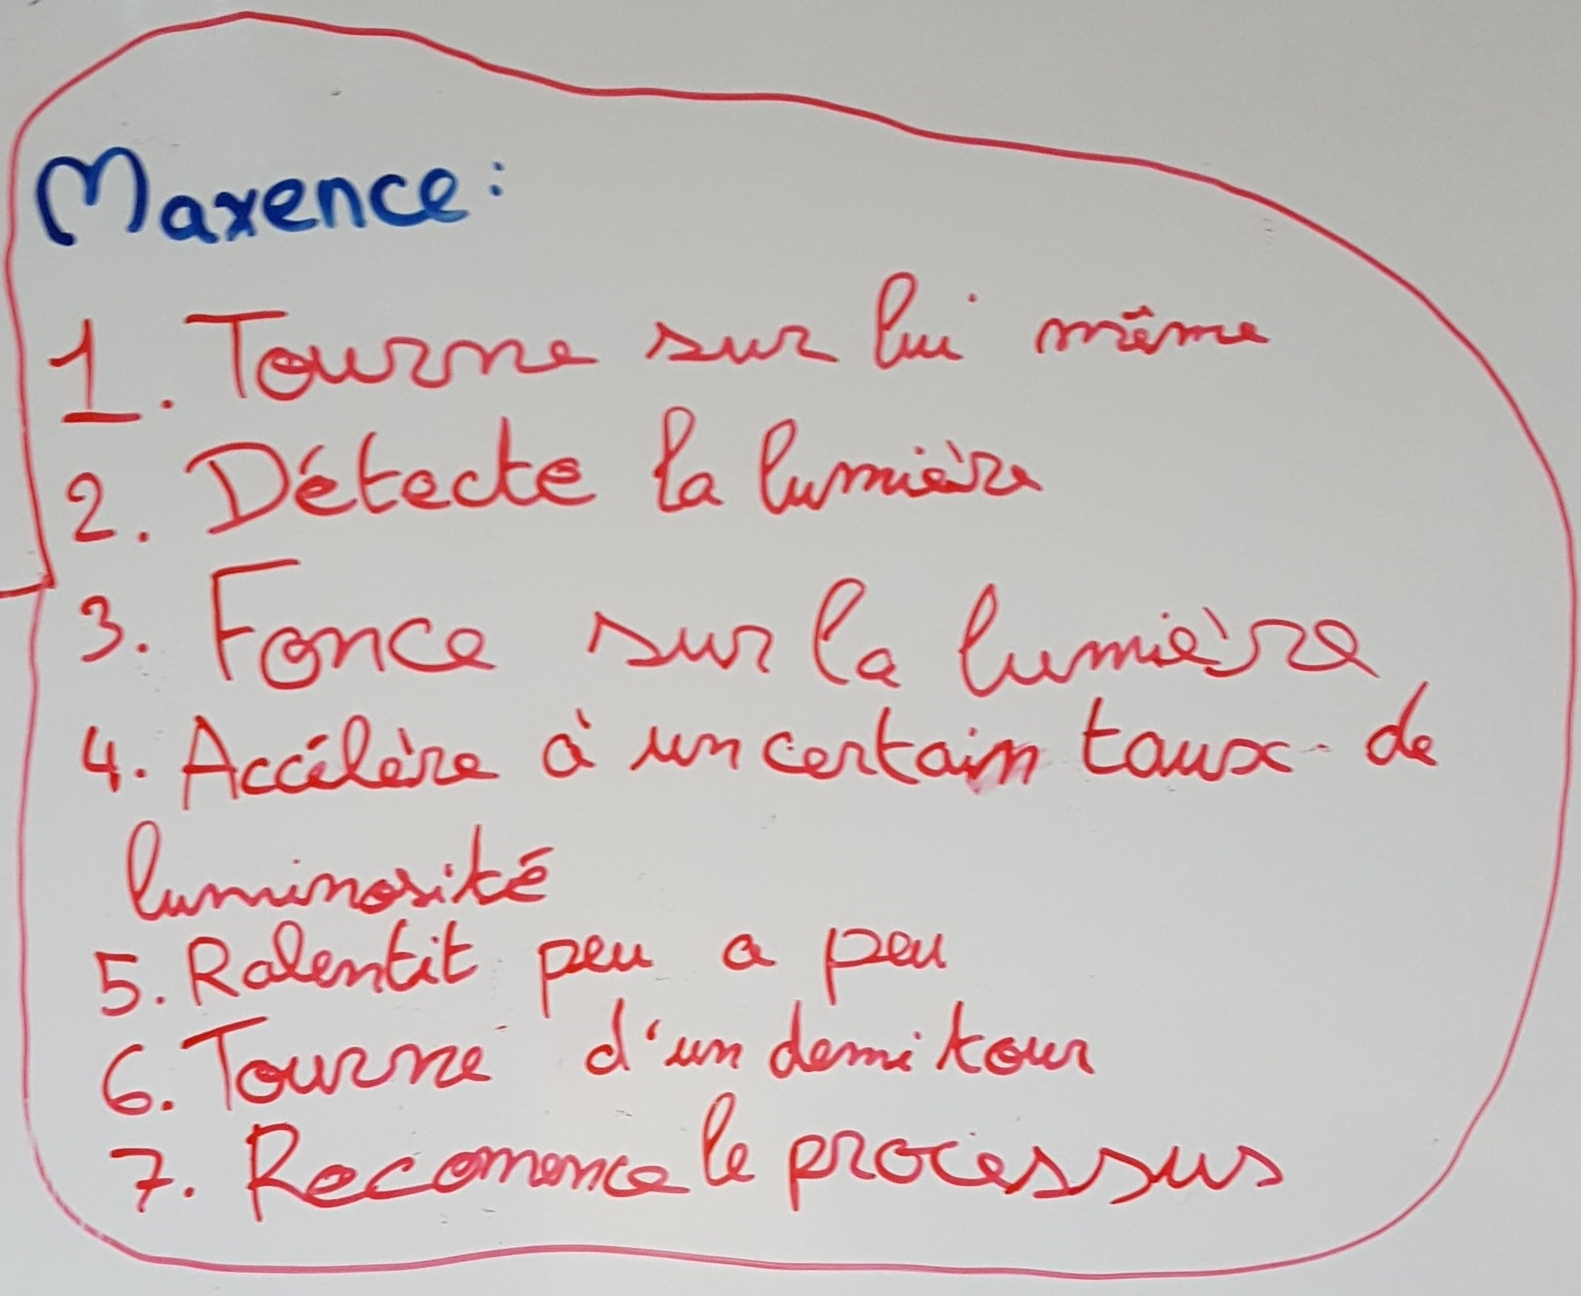 Maxence:
1. Tourne sur lui même
2. Détecte la lumière
3. Fonce sur la lumière
4. Accélère à un certain taux de
luminosité
5. Ralentit peu a peu
6. Tourne d'un demi tour
7. Recomence le processus